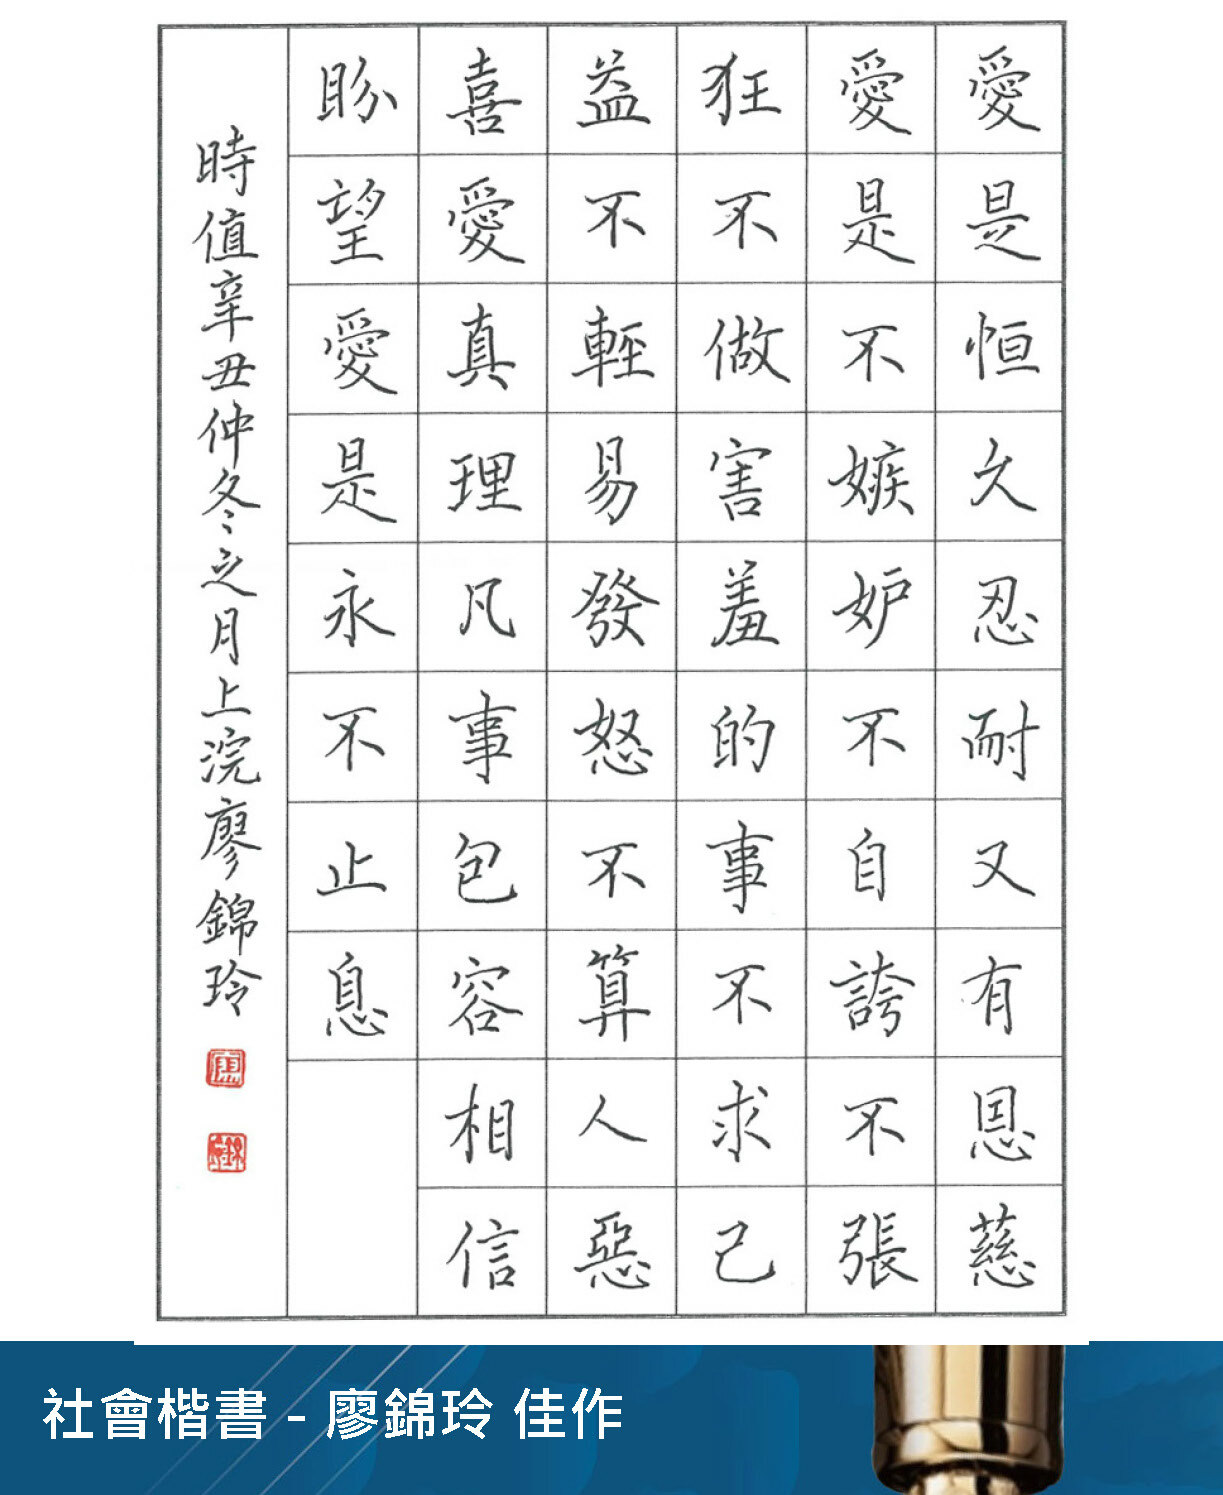 愛是恒久忍耐又有恩慈
愛是不嫉妒不自誇不張
狂不做害羞的事不求己
益不輕易發怒不算人惡
喜愛真理凡事包容相信
盼望愛是永不止息
時值辛丑仲冬之月上浣廖錦玲
社會楷書 - 廖錦玲 佳作